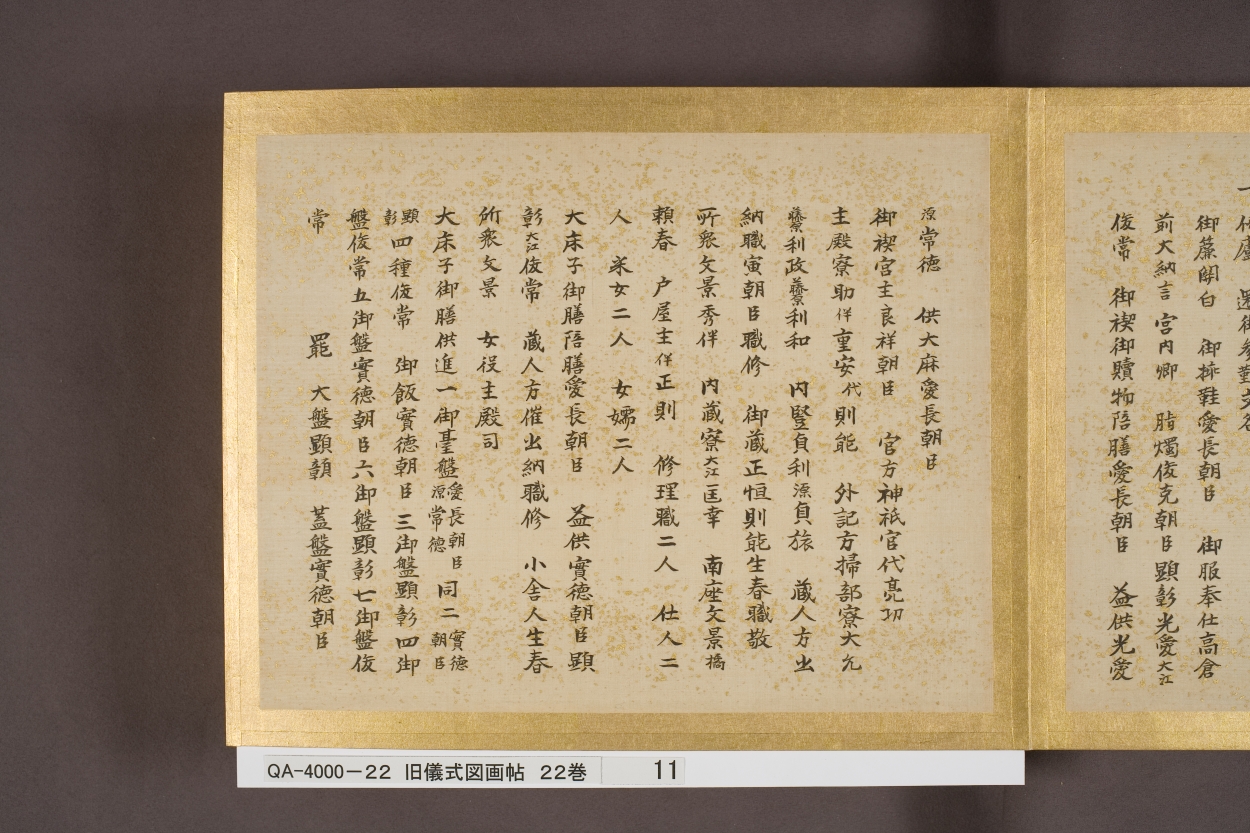 御簾関白　御挿鞋愛長朝臣　御服奉仕高倉
前大納言　宮内卿　脂燭俊克朝臣　顕彰光愛大江
俊常　御禊御贖物陪膳愛長朝臣　益供光愛
源常徳　供大麻愛長朝臣
御禊宮主良祥朝臣　官方神祇官代亮功
主殿寮助伴重安代則能　外記方掃部寮大允
藤原利政藤原利和　内豎貞利源貞旅　蔵人方出
納職寅朝臣職修　御蔵正恒則能生春職敬
所衆文景秀伴　内蔵寮大江匡幸　南座文景橘
頼春　戸屋主伴正則　修理職二人　仕人二
人　采女二人　女嬬二人
大床子御膳陪膳愛長朝臣　益供實徳朝臣顕
彰大江俊常　蔵人方催出納職修　小舎人生春
所衆文景　女役主殿司
大床子御膳供進一御臺盤愛長朝臣源常徳　同二實徳朝臣
顕彰四種俊常　御飯實徳朝臣　三御盤顕彰四御
盤俊常五御盤實徳朝臣六御盤顕彰七御盤俊
常　罷　大盤顕彰　蓋盤實徳朝臣
QA-4000-22　旧儀式図画帖　22巻　11